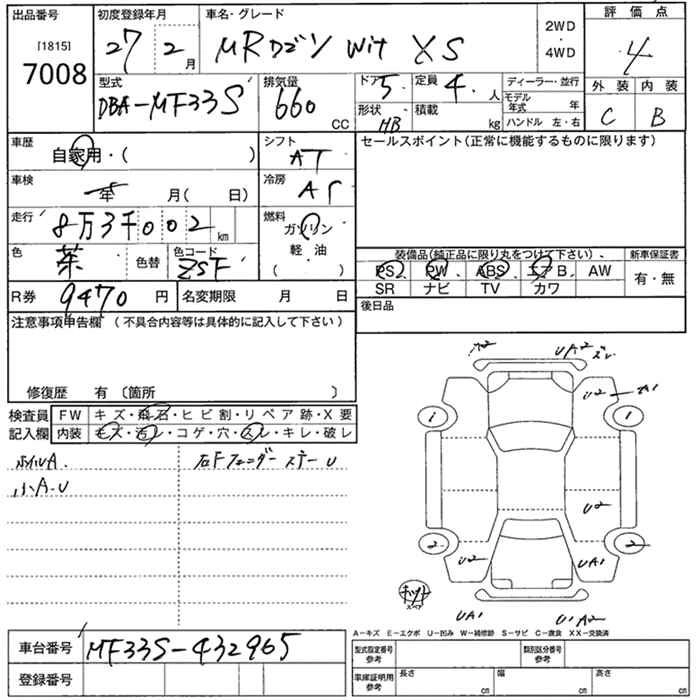 出品番号
[1815]
7008
初度登録年月
27 2 月
車名・グレード
MRワゴン Wit XS
2WD
・
4WD
評価点
4
型式
DBA-MF33S
排気量
660 CC
ドア 5
定員 4 人
形状 HB
積載 kg
ディーラー・並行
モデル年式 年
ハンドル 左・右
外装 内装
C B
車歴
自家用・( )
シフト
AT
セールスポイント(正常に機能するものに限ります)
車検
年 月( 日)
冷房
走行
8万3千002 km
燃料
ガソリン
軽・油
( )
色
茶
色替
色コード
ZSF
装備品(純正品に限り丸をつけて下さい)、
新車保証書
PS PW ABS エアB AW
SR ナビ TV カワ
有・無
R券 9470 円
名変期限 月 日
後日品
注意事項申告欄 (不具合内容等は具体的に記入して下さい)
修復歴 有 〔箇所 〕
検査員
記入欄
FW キズ・飛石・ヒビ割・リペア跡・X要
内装 キズ・汚レ・コゲ・穴・スレ・キレ・破レ
ホイルA.
小A-U
右Fフェンダー ステー U
A2
UA2 ズレ
U2
A1
1
1
U2
2
2
U2
UA1
スペア
UA1
U・A2
A−キズ E−エクボ U−凹み W−補修跡 S−サビ C−腐食 XX−交換済
車台番号 MF33S-432965
登録番号
型式指定番号
参考
類別区分番号
参考
車庫証明用
参考
長さ cm
幅 cm
高さ cm